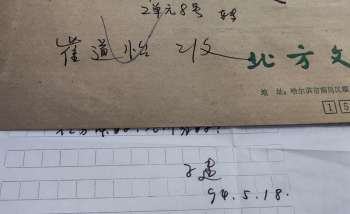 2单元8号 转
崔道怡 收
北方文
地 址：哈尔滨市南岗区耀
1 5
94.5.18.